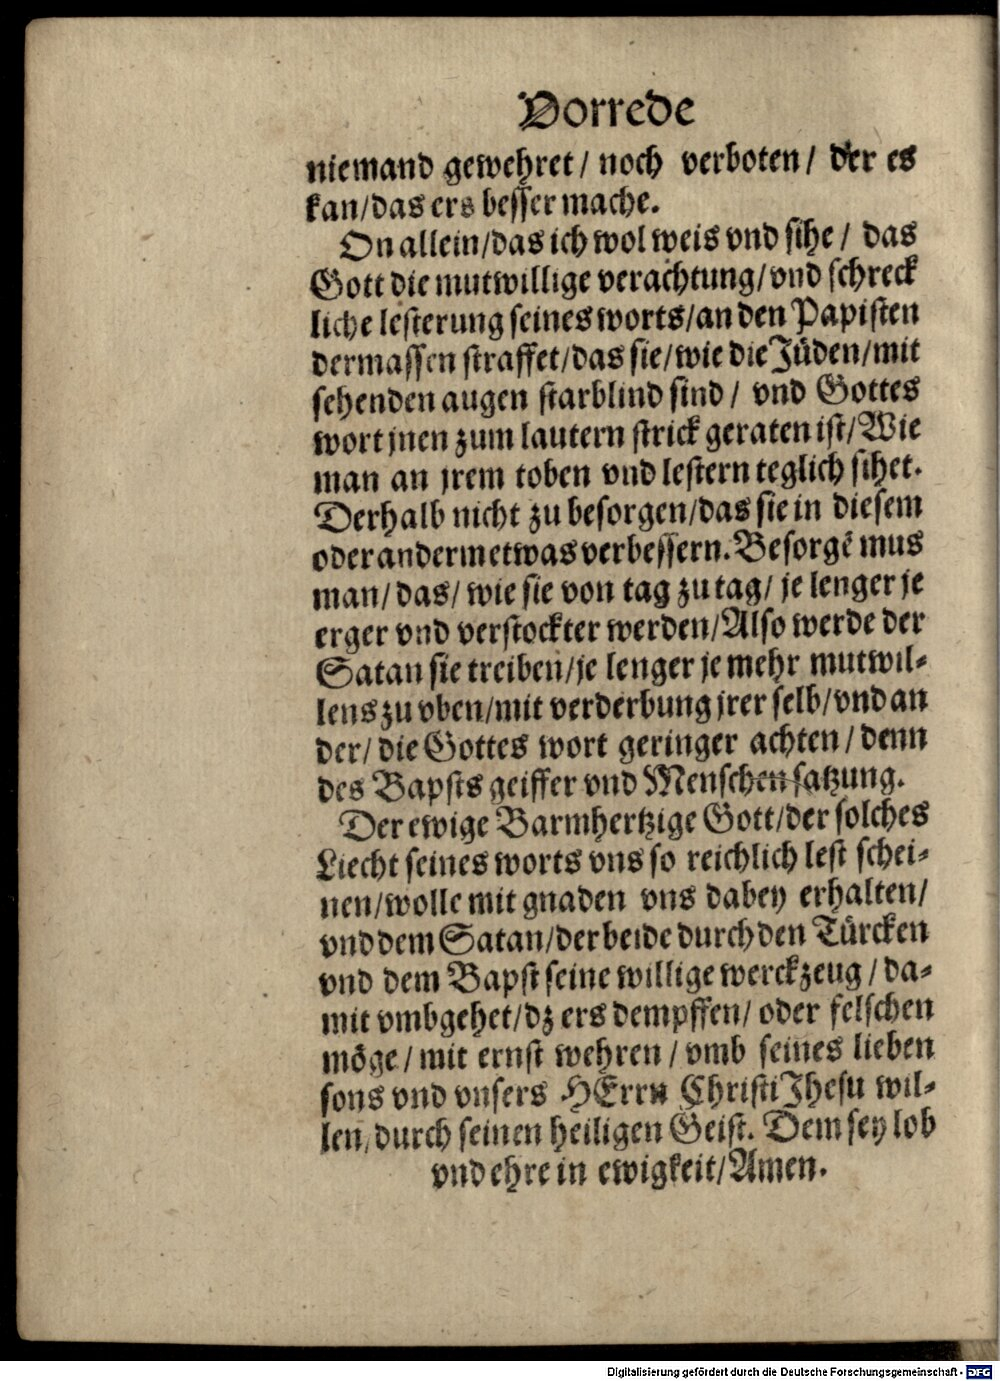 Vorrede
niemand gewehret / noch verboten / der es
kan / das ers besser mache.
On allein / das ich wol weis vnd sihe / das
Gott die mutwillige verachtung / vnd schreck
liche lesterung seines worts / an den Papisten
dermassen straffet / das sie / wie die Jüden / mit
sehenden augen starblind sind / vnd Gottes
wort jnen zum lautern strick geraten ist / Wie
man an jrem toben vnd lestern teglich sihet.
Derhalb nicht zu besorgen / das sie in diesem
oder anderm etwas verbessern. Besorgē mus
man / das / wie sie von tag zu tag / je lenger je
erger vnd verstockter werden / Also werde der
Satan sie treiben / je lenger je mehr mutwil-
lens zu vben / mit verderbung jrer selb / vnd an
der / die Gottes wort geringer achten / denn
des Bapsts geiffer vnd Menschen satzung.
Der ewige Barmhertzige Gott / der solches
Liecht seines worts vns so reichlich lest schei-
nen / wolle mit gnaden vns dabey erhalten /
vnd dem Satan / der beide durch den Türcken
vnd dem Bapst seine willige werckzeug / da-
mit vmbgehet / dz ers dempffen / oder felschen
möge / mit ernst wehren / vmb seines lieben
sons vnd vnsers HErrn Christi Jhesu wil-
len / durch seinen heiligen Geist. Dem sey lob
vnd ehre in ewigkeit / Amen.
Digitalisierung gefördert durch die Deutsche Forschungsgemeinschaft - DFG